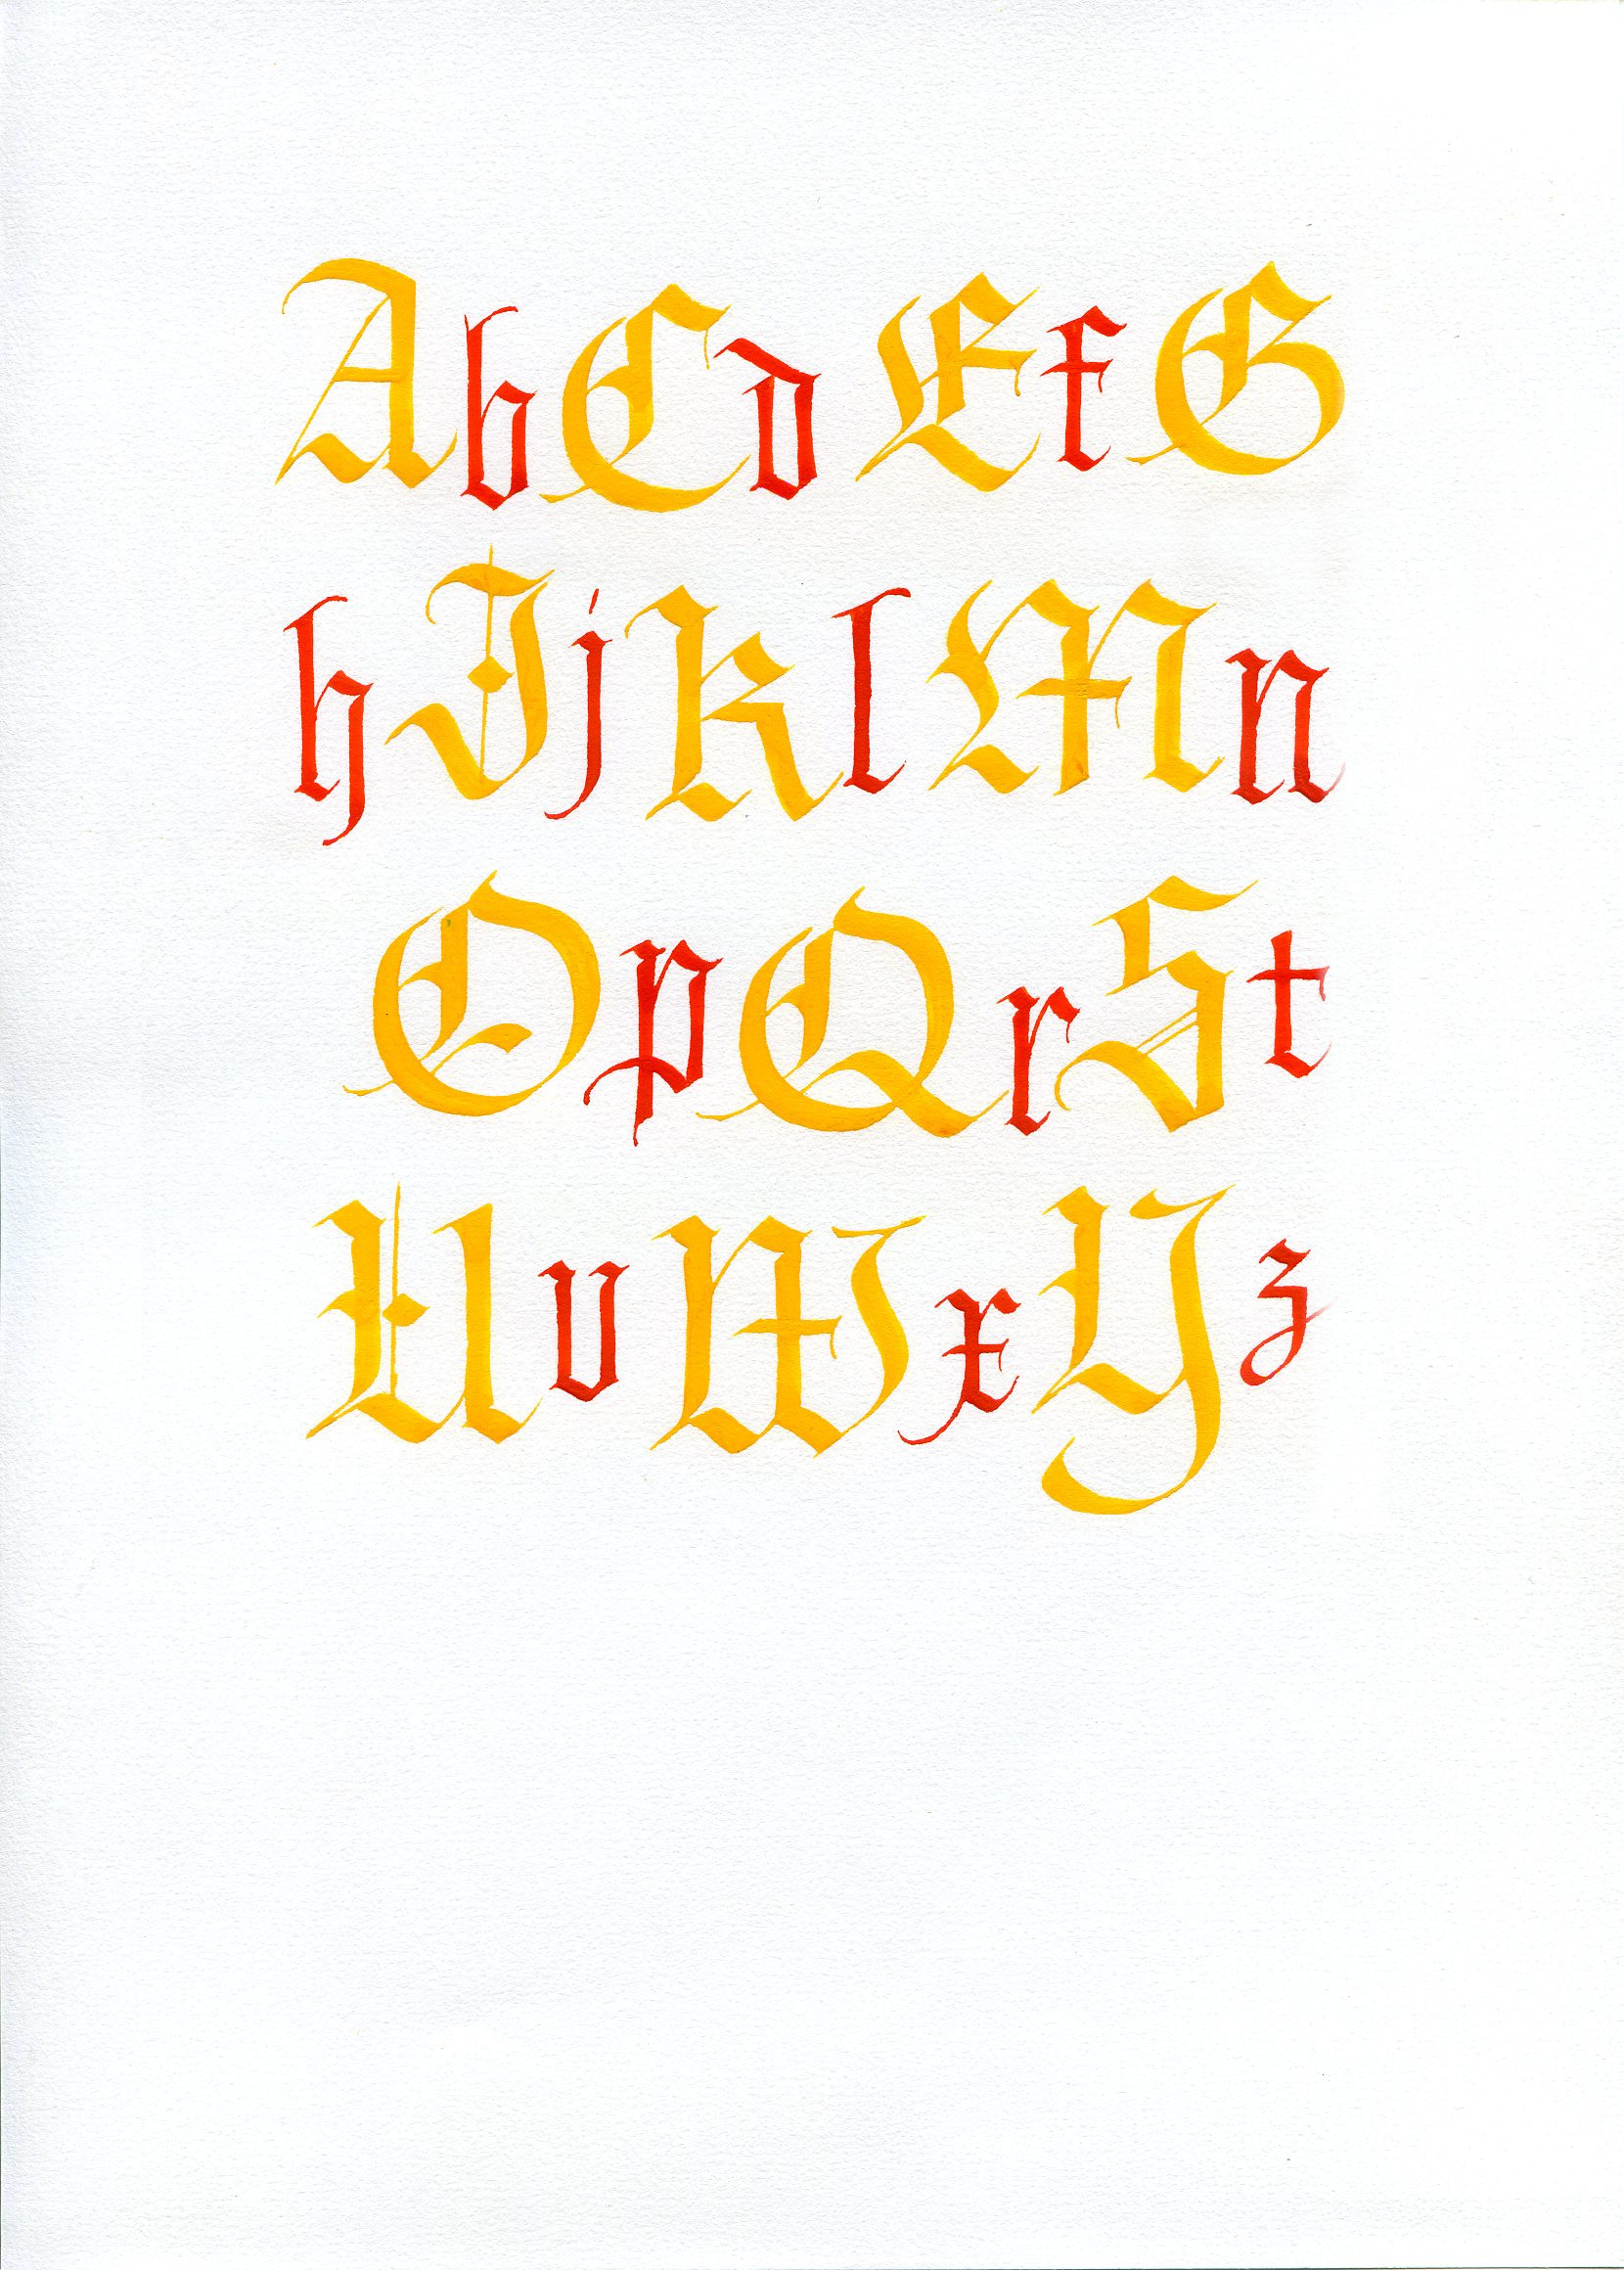 AbCdEfG
hIjKlMn
OpQrSt
UvWxYz